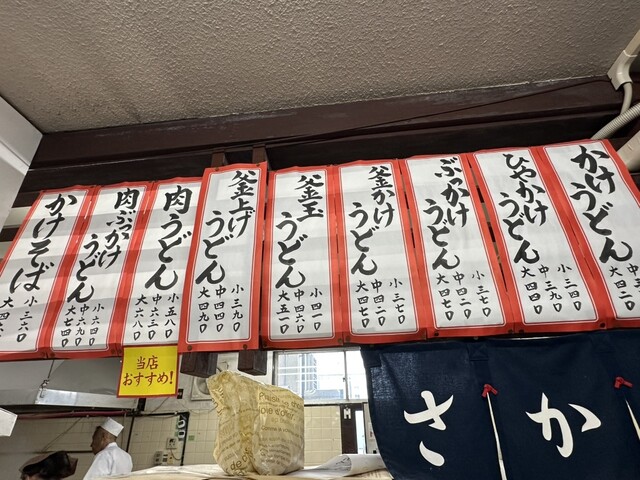 かけ
うどん
ひやかけ
うどん
小三四〇
中三九〇
大四四〇
ぶっかけ
うどん
小三七〇
中四二〇
大四七〇
釜かけ
うどん
小三七〇
中四二〇
大四七〇
釜玉
うどん
小四一〇
中四六〇
大五一〇
釜上げ
うどん
小三九〇
中四四〇
大四九〇
肉うどん
小五八〇
中六三〇
大六八〇
肉ぶっかけ
うどん
小六四〇
中六九〇
大七四〇
かけそば
当店
おすすめ!
さか